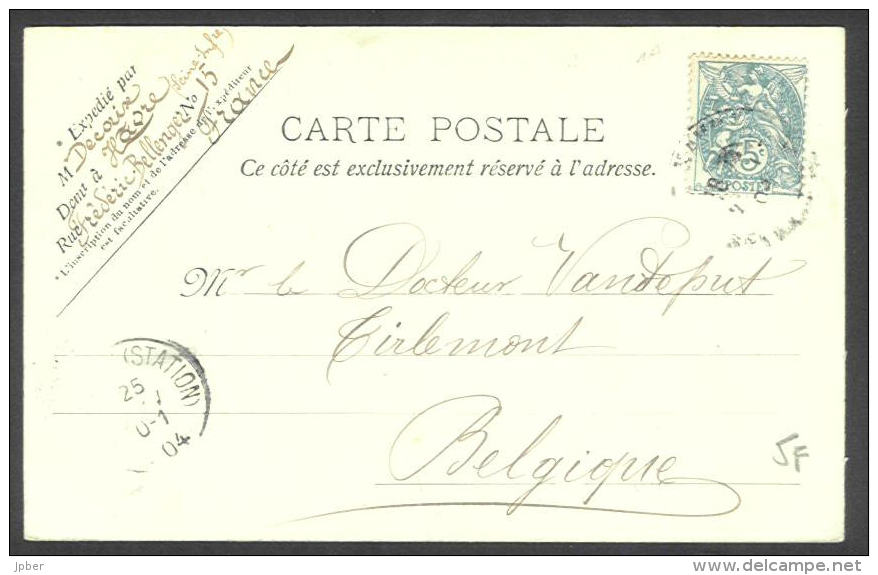 * Expédié par
M Decaix
Demt à Havre (Seine-Infre)
Rue Frédéric-Bellenger No 15
* L'inscription du nom et de l'adresse de l'expéditeur
est facultative.
France
CARTE POSTALE
Ce côté est exclusivement réservé à l'adresse.
5c
POSTES
Mr le Docteur Vandeput
Tirlemont
Belgique
(STATION)
25
0-1
04
5F
jpber
www.delcampe.net